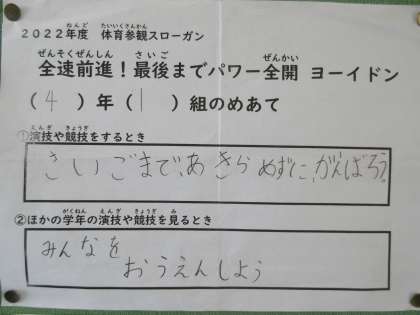 2022年度 体育参観スローガン
全速前進！最後までパワー全開 ヨーイドン
（4）年（1）組のめあて
①演技や競技をするとき
さいごまで、あきらめずに、がんばろう。
②ほかの学年の演技や競技を見るとき
みんなを
おうえんしよう